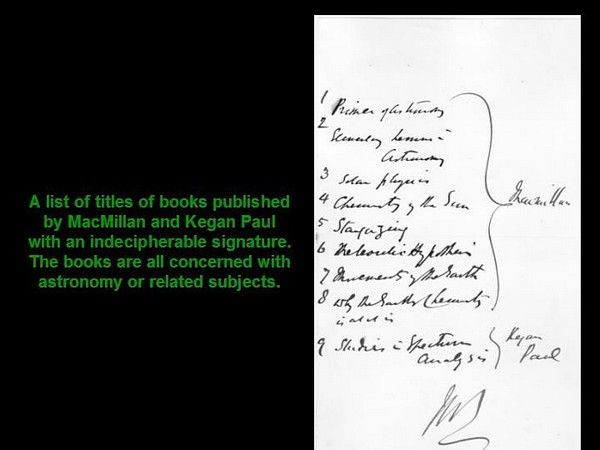 A list of titles of books published
by MacMillan and Kegan Paul
with an indecipherable signature.
The books are all concerned with
astronomy or related subjects.
1 Primer of Astronomy
2
Elementary Lessons in
Astronomy
3 Solar physics
4 Chemistry of the Sun
5 Stargazing
6 Meteoritic Hypothesis
7 Movements of the Earth
8 Why the Earth's Chemistry
is as it is
Macmillan
9 Studies in Spectrum
Analysis
Kegan
Paul